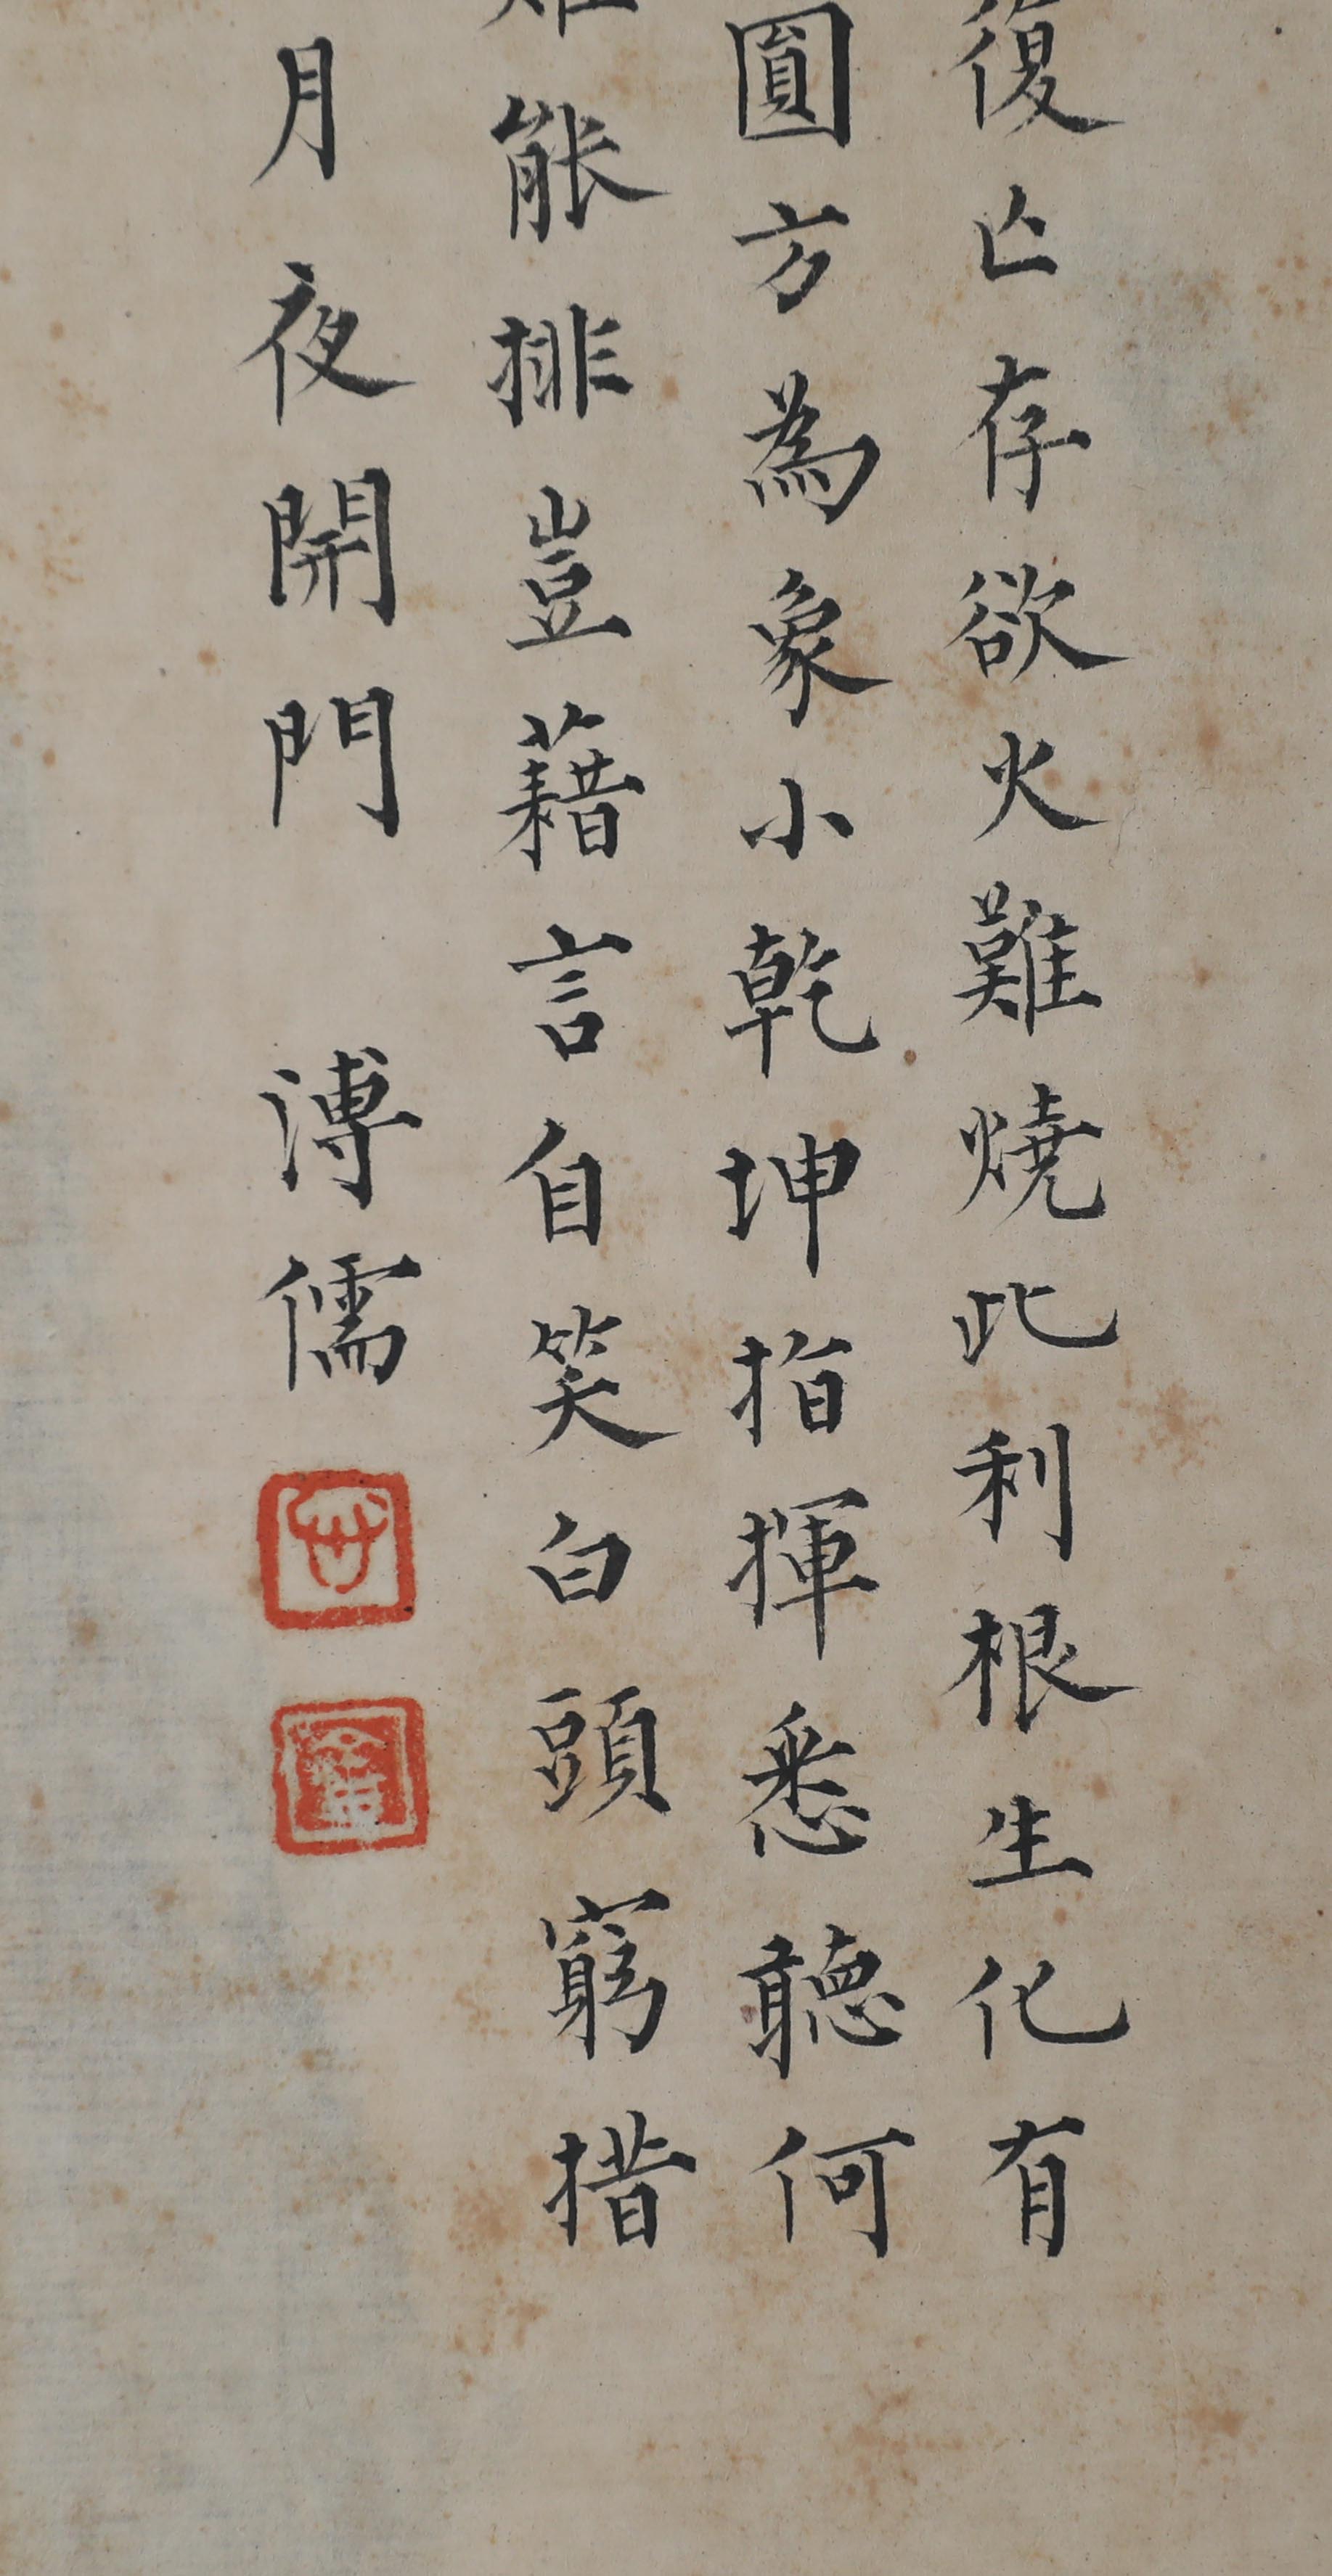 復亡存欲火難燒此利根生化有
圓方為象小乾坤指揮悉聽何
能排豈藉言自笑白頭窮措
月夜開門 溥儒